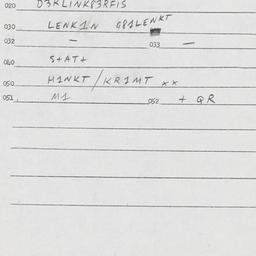 020 D3RLINK83RFIS
030 LENK1N G81LENKT
032 — 033 —
040 S+AT+
050 H1NKT/KR1MT xx
051 M1 052 + QR